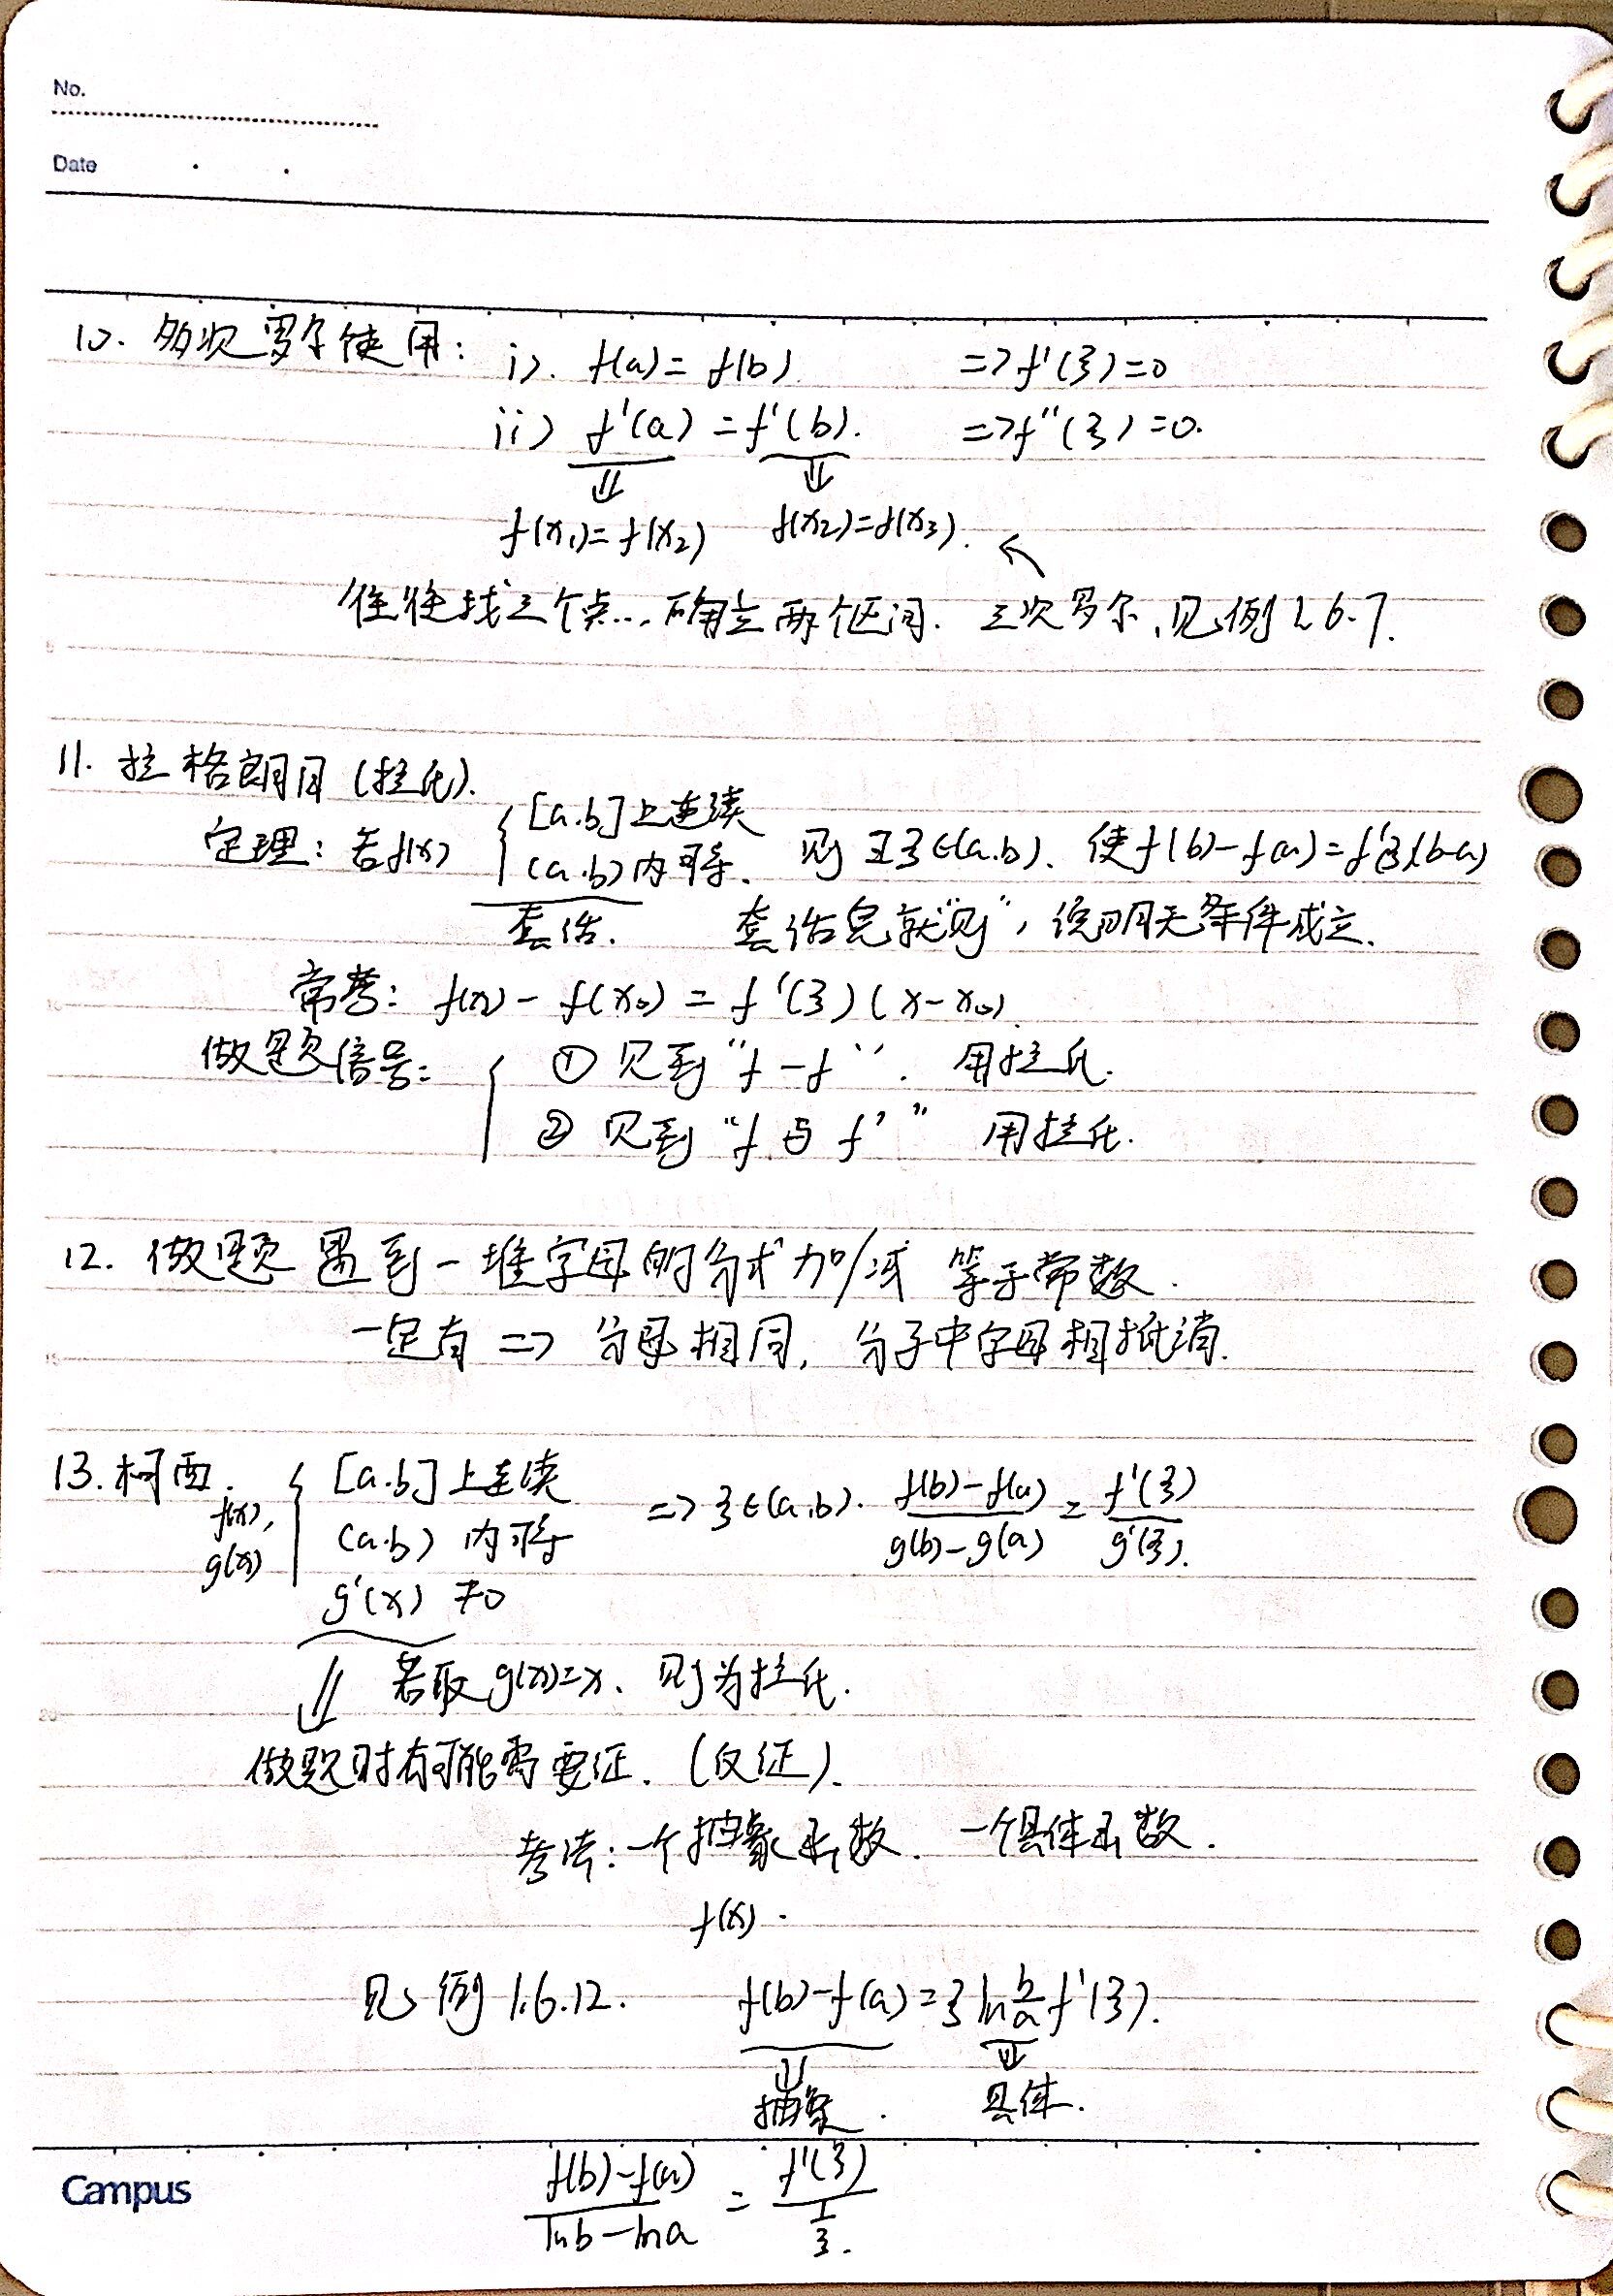 No.
Date
10. 多次罗尔使用: i). f(a)=f(b) => f'(ξ)=0
ii) f'(a)=f'(b). => f''(ξ)=0.
⇓ ⇓
f(x₁)=f(x₂) f(x₂)=f(x₃).
往往找三个点...确立两个区间. 三次罗尔,见例1.6.7.
11. 拉格朗日(拉氏).
定理: 若f(x) { [a.b]上连续 (a.b)内可导. 则 ∃ξ∈(a.b). 使f(b)-f(a)=f'(ξ)(b-a)
套话. 套话完就"则", 说明无条件成立.
常考: f(x)-f(x₀)=f'(ξ)(x-x₀).
做题信号: { ① 见到"f-f". 用拉氏.
② 见到"f与f'" 用拉氏.
12. 做题遇到一堆字母的分式加/减 等于常数.
一定有 => 分母相同, 分子中字母相抵消.
13. 柯西. f(x), g(x) { [a.b]上连续
(a.b) 内可导 => ξ∈(a,b). (f(b)-f(a))/(g(b)-g(a)) = f'(ξ)/g'(ξ).
g'(x) ≠0
⇓ 若取g(x)=x. 则为拉氏.
做题时有可能需要证. (反证).
考法: 一个抽象函数. 一个具体函数.
f(x).
见例1.6.12. f(b)-f(a)=ξ ln b/a f'(ξ).
⇓ ⇓
抽象. 具体.
(f(b)-f(a))/(ln b-ln a) = f'(ξ)/(1/ξ).
Campus